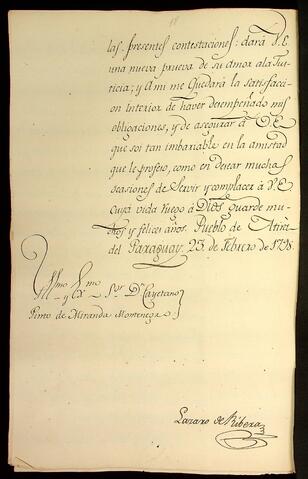 las presentes contestaciones: dará V.E.
una nueva prueba de su amor ala Jus-
ticia; y Ami me Quedará la satisfacci-
on interior de haver desempeñado mis
obligaciones, y de asegurar à V.E.
que soi tan imbariable en la amistad
que le profeso, como en desear muchas
ocasiones de Servir y complacer à V.E.
Cuya vida ruego à Dios guarde mu-
chos y felices años. Pueblo de Atira
del Paraguay 23 de Febrero de 1798.
Yllmo y Exmo Sor Dn Cayetano
Pinto de Miranda Montenegro
Lazaro de Ribera